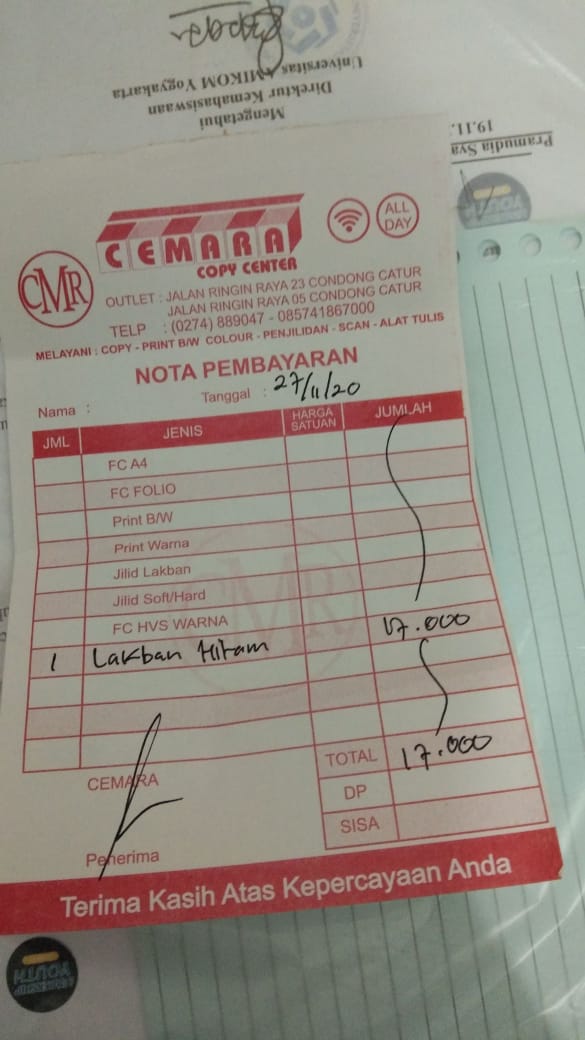 Mengetahui
Direktur Kemahasiswaan
Universitas AMIKOM Yogyakarta
Pramudia Sya
19.11.
CMR
CEMARA
COPY CENTER
ALL
DAY
OUTLET : JALAN RINGIN RAYA 23 CONDONG CATUR
JALAN RINGIN RAYA 05 CONDONG CATUR
TELP : (0274) 889047 - 085741867000
MELAYANI : COPY - PRINT B/W COLOUR - PENJILIDAN - SCAN - ALAT TULIS
NOTA PEMBAYARAN
Nama :
Tanggal : 27/11/20
JML JENIS HARGA SATUAN JUMLAH
FC A4
FC FOLIO
Print B/W
Print Warna
Jilid Lakban
Jilid Soft/Hard
FC HVS WARNA
1 Lakban Hitam 17.000
TOTAL 17.000
DP
SISA
CEMARA
Penerima
Terima Kasih Atas Kepercayaan Anda
YOUTH